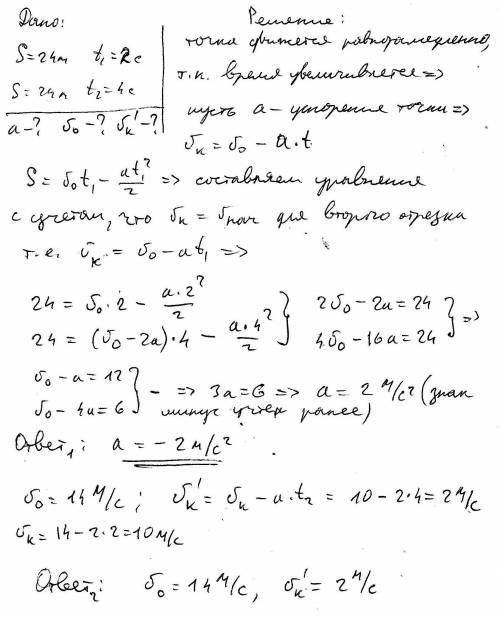 Дано:
S=24м t₁=2с
S=24м t₂=4с
a-? v₀-? vₖ'-?
Решение:
точка движется равнозамедленно,
т.к. время увеличивается =>
пусть a – ускорение точки =>
vₖ = v₀ - a·t
S = v₀t₁ - at₁²/2 => составляем уравнения
с учетом, что vₖ = vнач для второго отрезка
т.е. vₖ = v₀ - at₁ =>
24 = v₀·2 - a·2²/2 } 2v₀ - 2a = 24 } =>
24 = (v₀-2a)·4 - a·4²/2 } 4v₀ - 16a = 24
v₀ - a = 12 } - => 3a=6 => a = 2 м/с² (знак
v₀ - 4a = 6 минус учтен ранее)
Ответ₁: a = -2 м/с²
v₀ = 14 м/с; vₖ' = vₖ - a·t₂ = 10 - 2·4 = 2 м/с
vₖ = 14 - 2·2 = 10 м/с
Ответ₂: v₀ = 14 м/с, vₖ' = 2 м/с